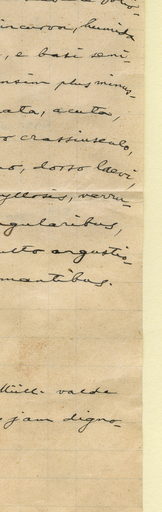 incurva, humida
, e basi seni-
ensim plus minus-
ata, acuta,
o crassiusculo,
no, dorso laevi,
yllosis, verru-
gularibus,
ulto angustio-
mantibus.
Müll. valde
jam digno-